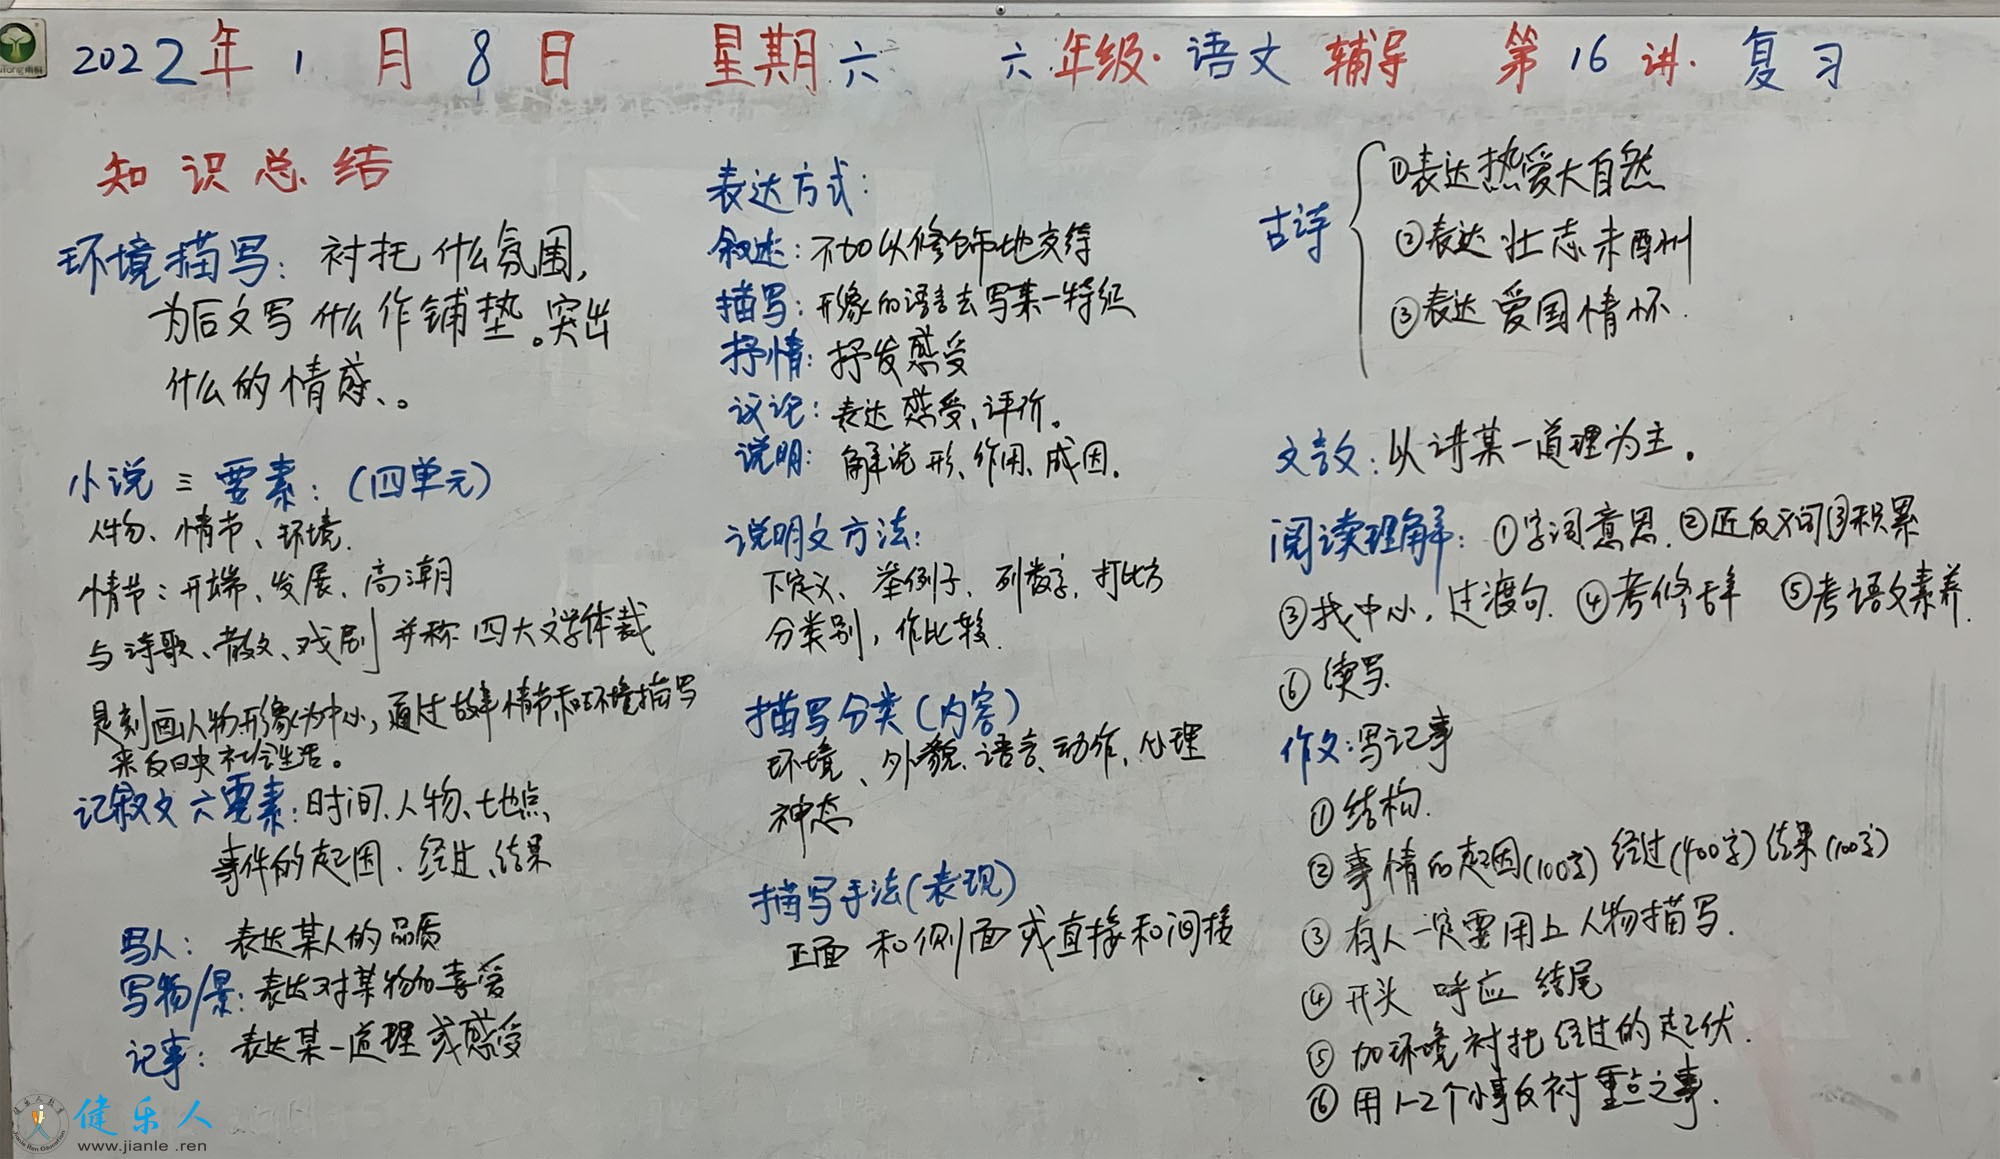 2022年1月8日 星期六 六年级·语文 辅导 第16讲·复习
知识总结
环境描写：衬托什么氛围，
为后文写什么作铺垫。突出
什么的情感、。
小说三要素：（四单元）
人物、情节、环境.
情节：开端、发展、高潮
与诗歌、散文、戏剧并称四大文学体裁
是刻画人物形象为中心，通过故事情节和环境描写
来反映社会生活。
记叙文六要素：时间、人物、地点、
事件的起因、经过、结果
写人：表达某人的品质
写物/景：表达对某物的喜爱
记事：表达某一道理或感受
表达方式：
叙述：不加以修饰地交待
描写：形象的语言去写某一特征
抒情：抒发感受
议论：表达感受、评价。
说明：解说形、作用、成因.
说明文方法：
下定义、举例子、列数字、打比方
分类别，作比较.
描写分类（内容）
环境、外貌、语言、动作、心理
神态
描写手法（表现）
正面和侧面或直接和间接
古诗
①表达热爱大自然
②表达壮志未酬
③表达爱国情怀.
文言文：以讲某一道理为主。
阅读理解：①字词意思.②近反义词③积累
③找中心，过渡句.④考修辞 ⑤考语文素养.
⑥续写.
作文：写记事
①结构.
②事情的起因（100字）经过（400字）结果（100字）
③有人一定要用上人物描写.
④开头 呼应 结尾
⑤加环境衬托经过的起伏.
⑥用1-2个小事反衬重点之事.
健乐人
www.jianle.ren